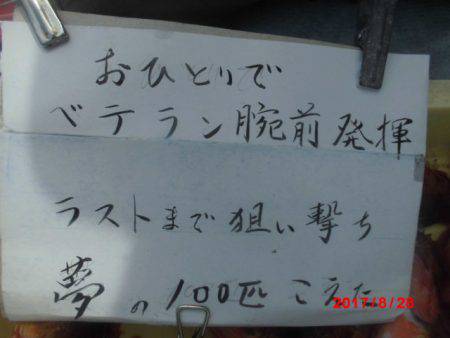 おひとりで
ベテラン腕前発揮
ラストまで狙い撃ち
夢の100匹こえた
2017/8/28